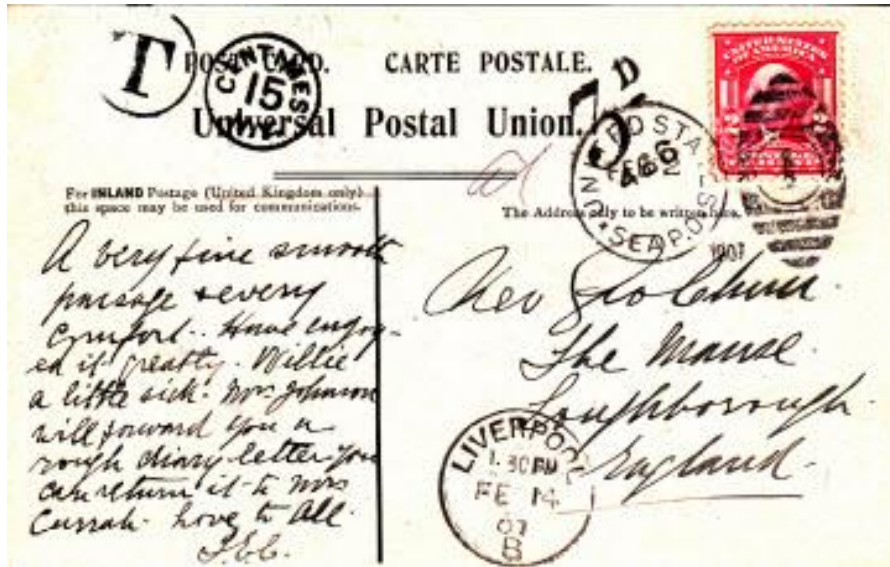 T
CENTIMES
15
N.Y.
POST CARD. CARTE POSTALE.
Universal Postal Union.
D
UNITED STATES
OF AMERICA
2 2
CENTS
U.S. POSTAL
SEA POST
1907
For INLAND Postage (United Kingdom only)
this space may be used for communications.
The Address only to be written here.
A very fine smooth
passage & every
comfort. Have enjoy-
ed it greatly. Willie
a little sick. Mrs Johnson
will forward you a
rough diary-letter you
can return it to Mrs
Currah. Love to all.
Rev Geo
The Manse.
Loughborough.
England.
LIVERPOOL
1.30 PM
FE 14
07
B